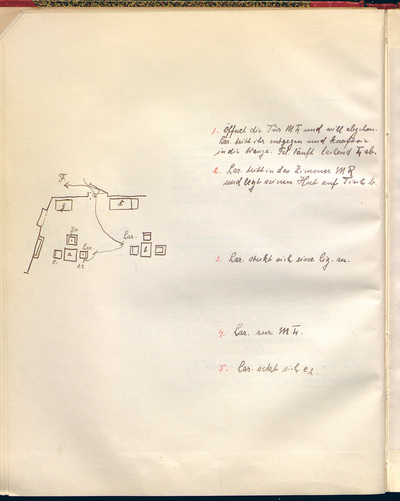 1. öffnet die Tür MTh und will abgehen.
Car. tritt ihr entgegen und kneift sie
in die Wange. Fé. läuft lachend ab.
2. Car. tritt in das Zimmer MR
und legt seinen Hut auf Tisch b.
3. Car. steckt sich eine Cig. an.
4. Car. zur MTh.
5. Car. setzt sich c2.
F.
Car.
Car.
a
b
c2